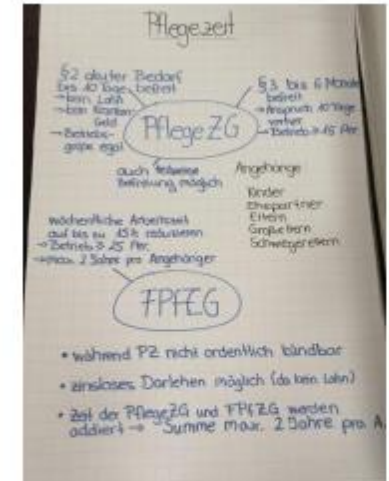 Pflegezeit
§2 akuter Bedarf
bis 10 Tage befreit
→ kein Lohn
→ kein Kranken-
Geld
→ Betriebs-
größe egal
§3 bis 6 Monate
befreit
→ Anspruch 10 Tage
vorher
→ Betrieb > 15 Per.
PflegeZG
auch teilweise
Befreiung möglich
Angehörige
Kinder
Ehepartner
Eltern
Großeltern
Schwiegereltern
wöchentliche Arbeitszeit
auf bis zu 15h reduzieren
→ Betrieb > 25 Per.
→ max. 2 Jahre pro Angehöriger
FPfZG
• während PZ nicht ordentlich kündbar
• zinsloses Darlehen möglich (da kein Lohn)
• Zeit der PflegeZG und FPfZG werden
addiert → Summe max. 2 Jahre pro A.